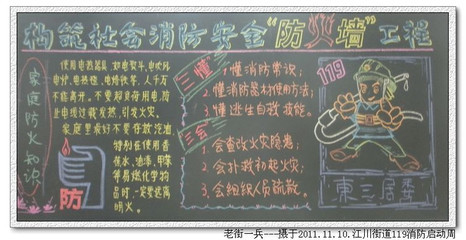 构筑社会消防安全“防火墙”工程
家庭防火知识
使用电热器具,如电熨斗、电吹风
电炉、电热毯、电烙铁等,人千万
不能离开。不要超负荷用电,防
止电线过载发热,引发火灾。
家庭里最好不要存放汽油
特别在使用香
蕉水、油漆、甲苯
等易燃化学物
品时一定要远离
明火。
防
三懂
1.懂消防常识;
2.懂消防器材使用方法;
3.懂逃生自救技能。
三会
1.会查改火灾隐患;
2.会扑救初起火灾;
3.会组织人员疏散。
119
東三居委
老街一兵---摄于2011.11.10.江川街道119消防启动周